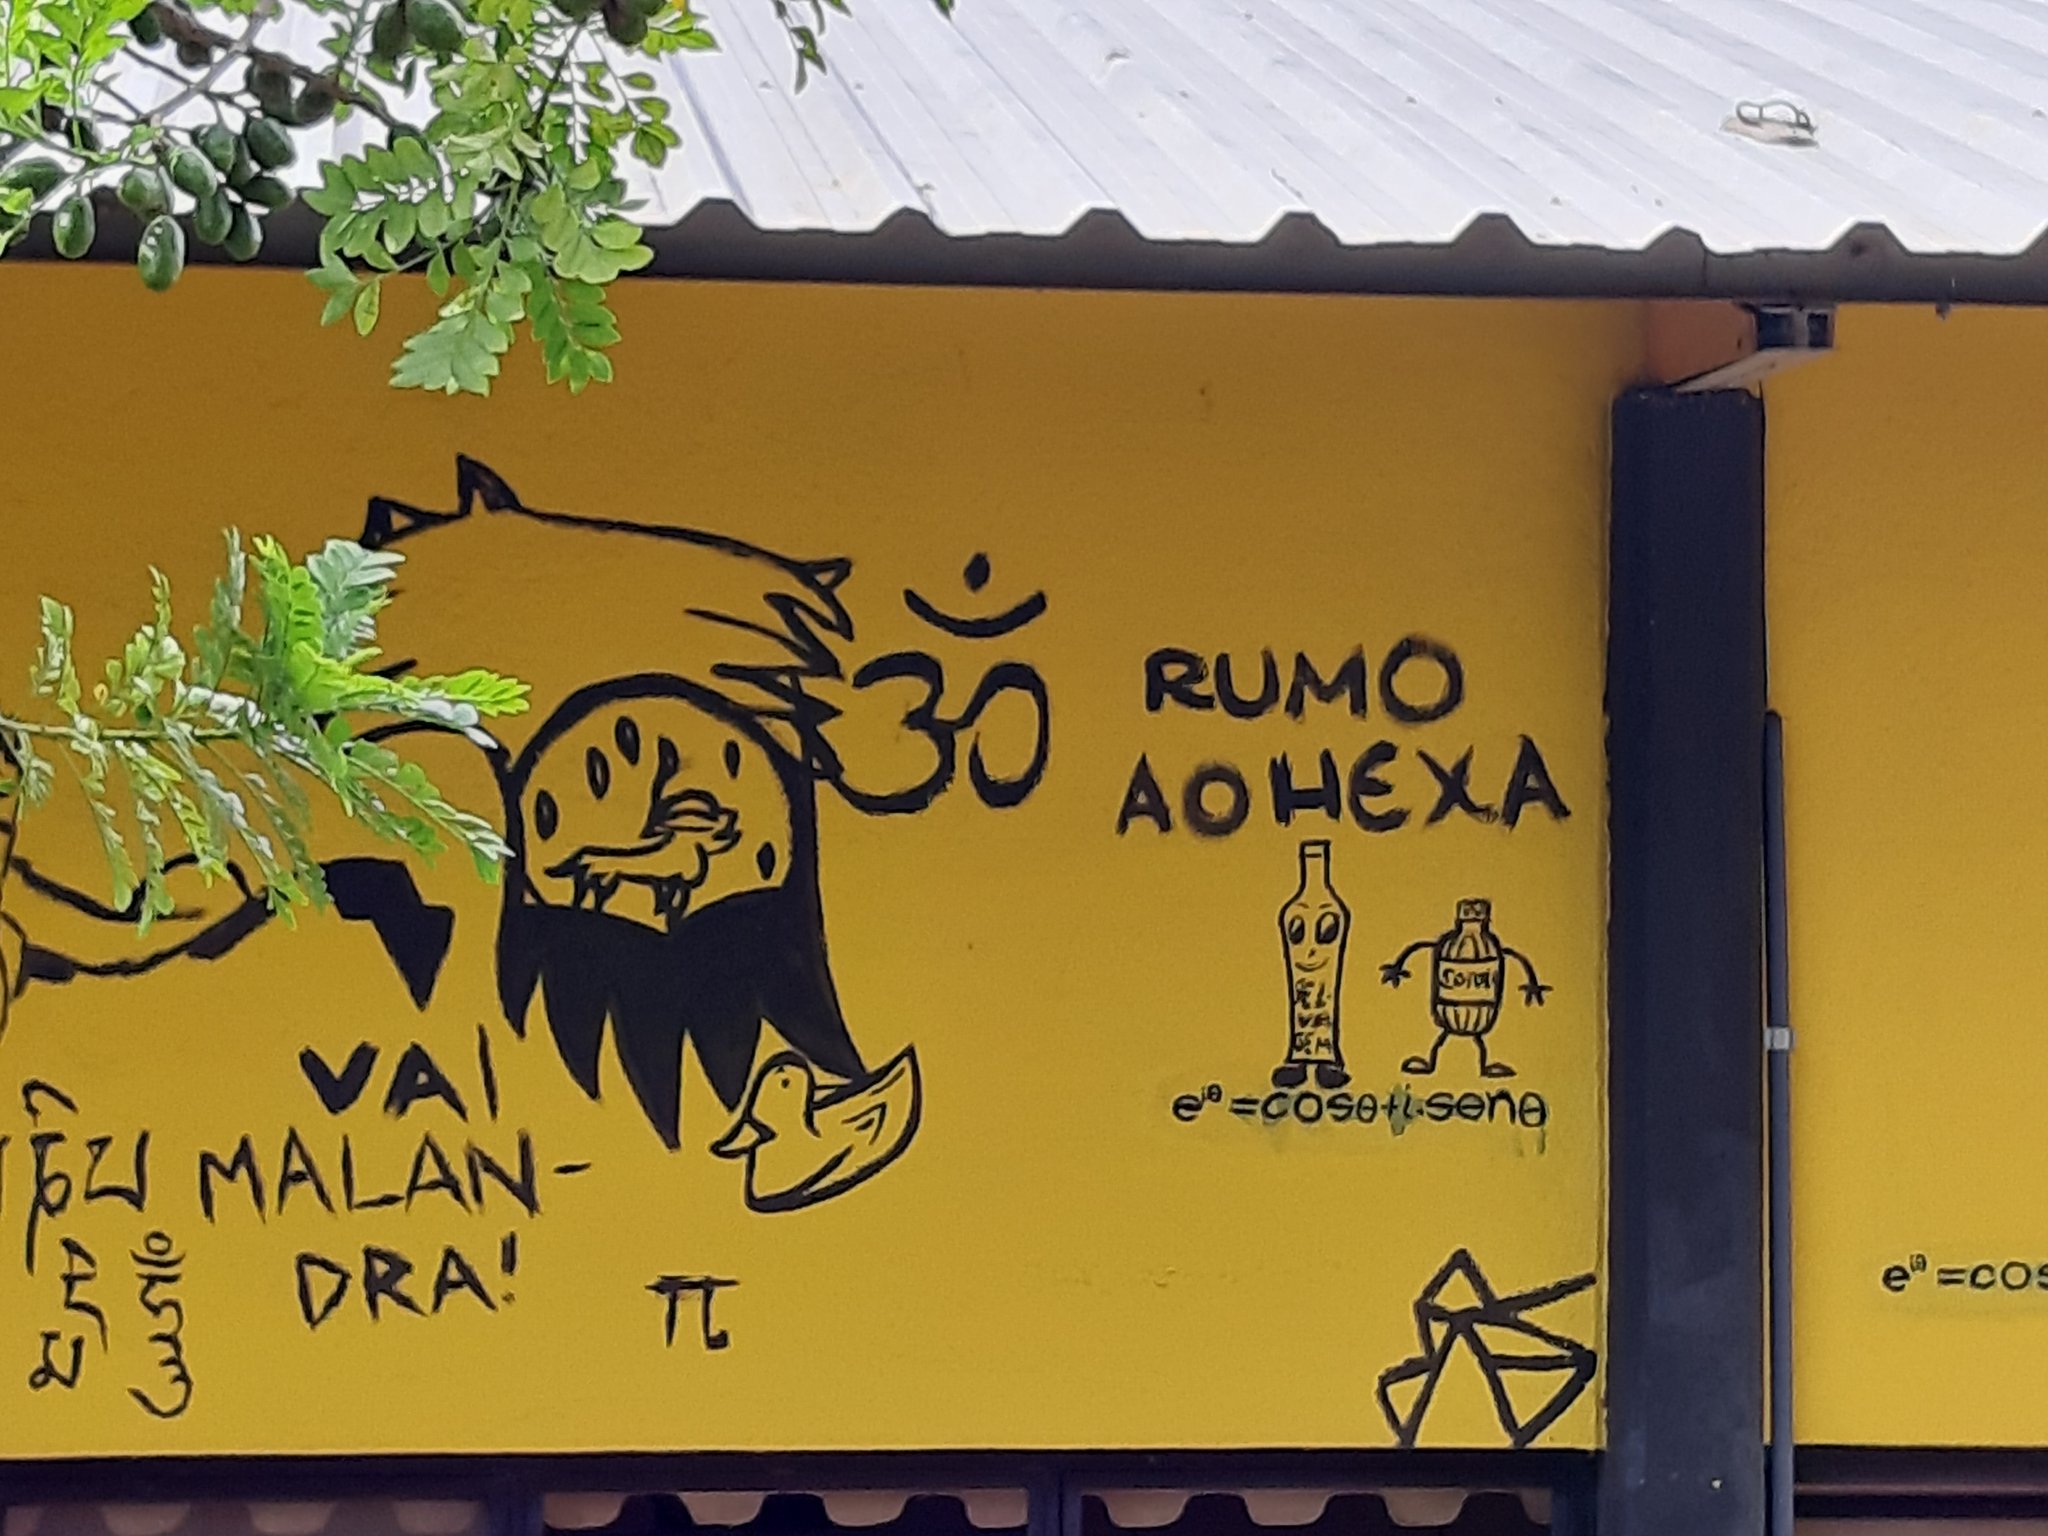 ॐ
RUMO
AO HEXA
SELVAGEM
Corote
e^iθ=cosθ+i.senθ
VAI
MALAN-
DRA!
π
e^iθ=cos